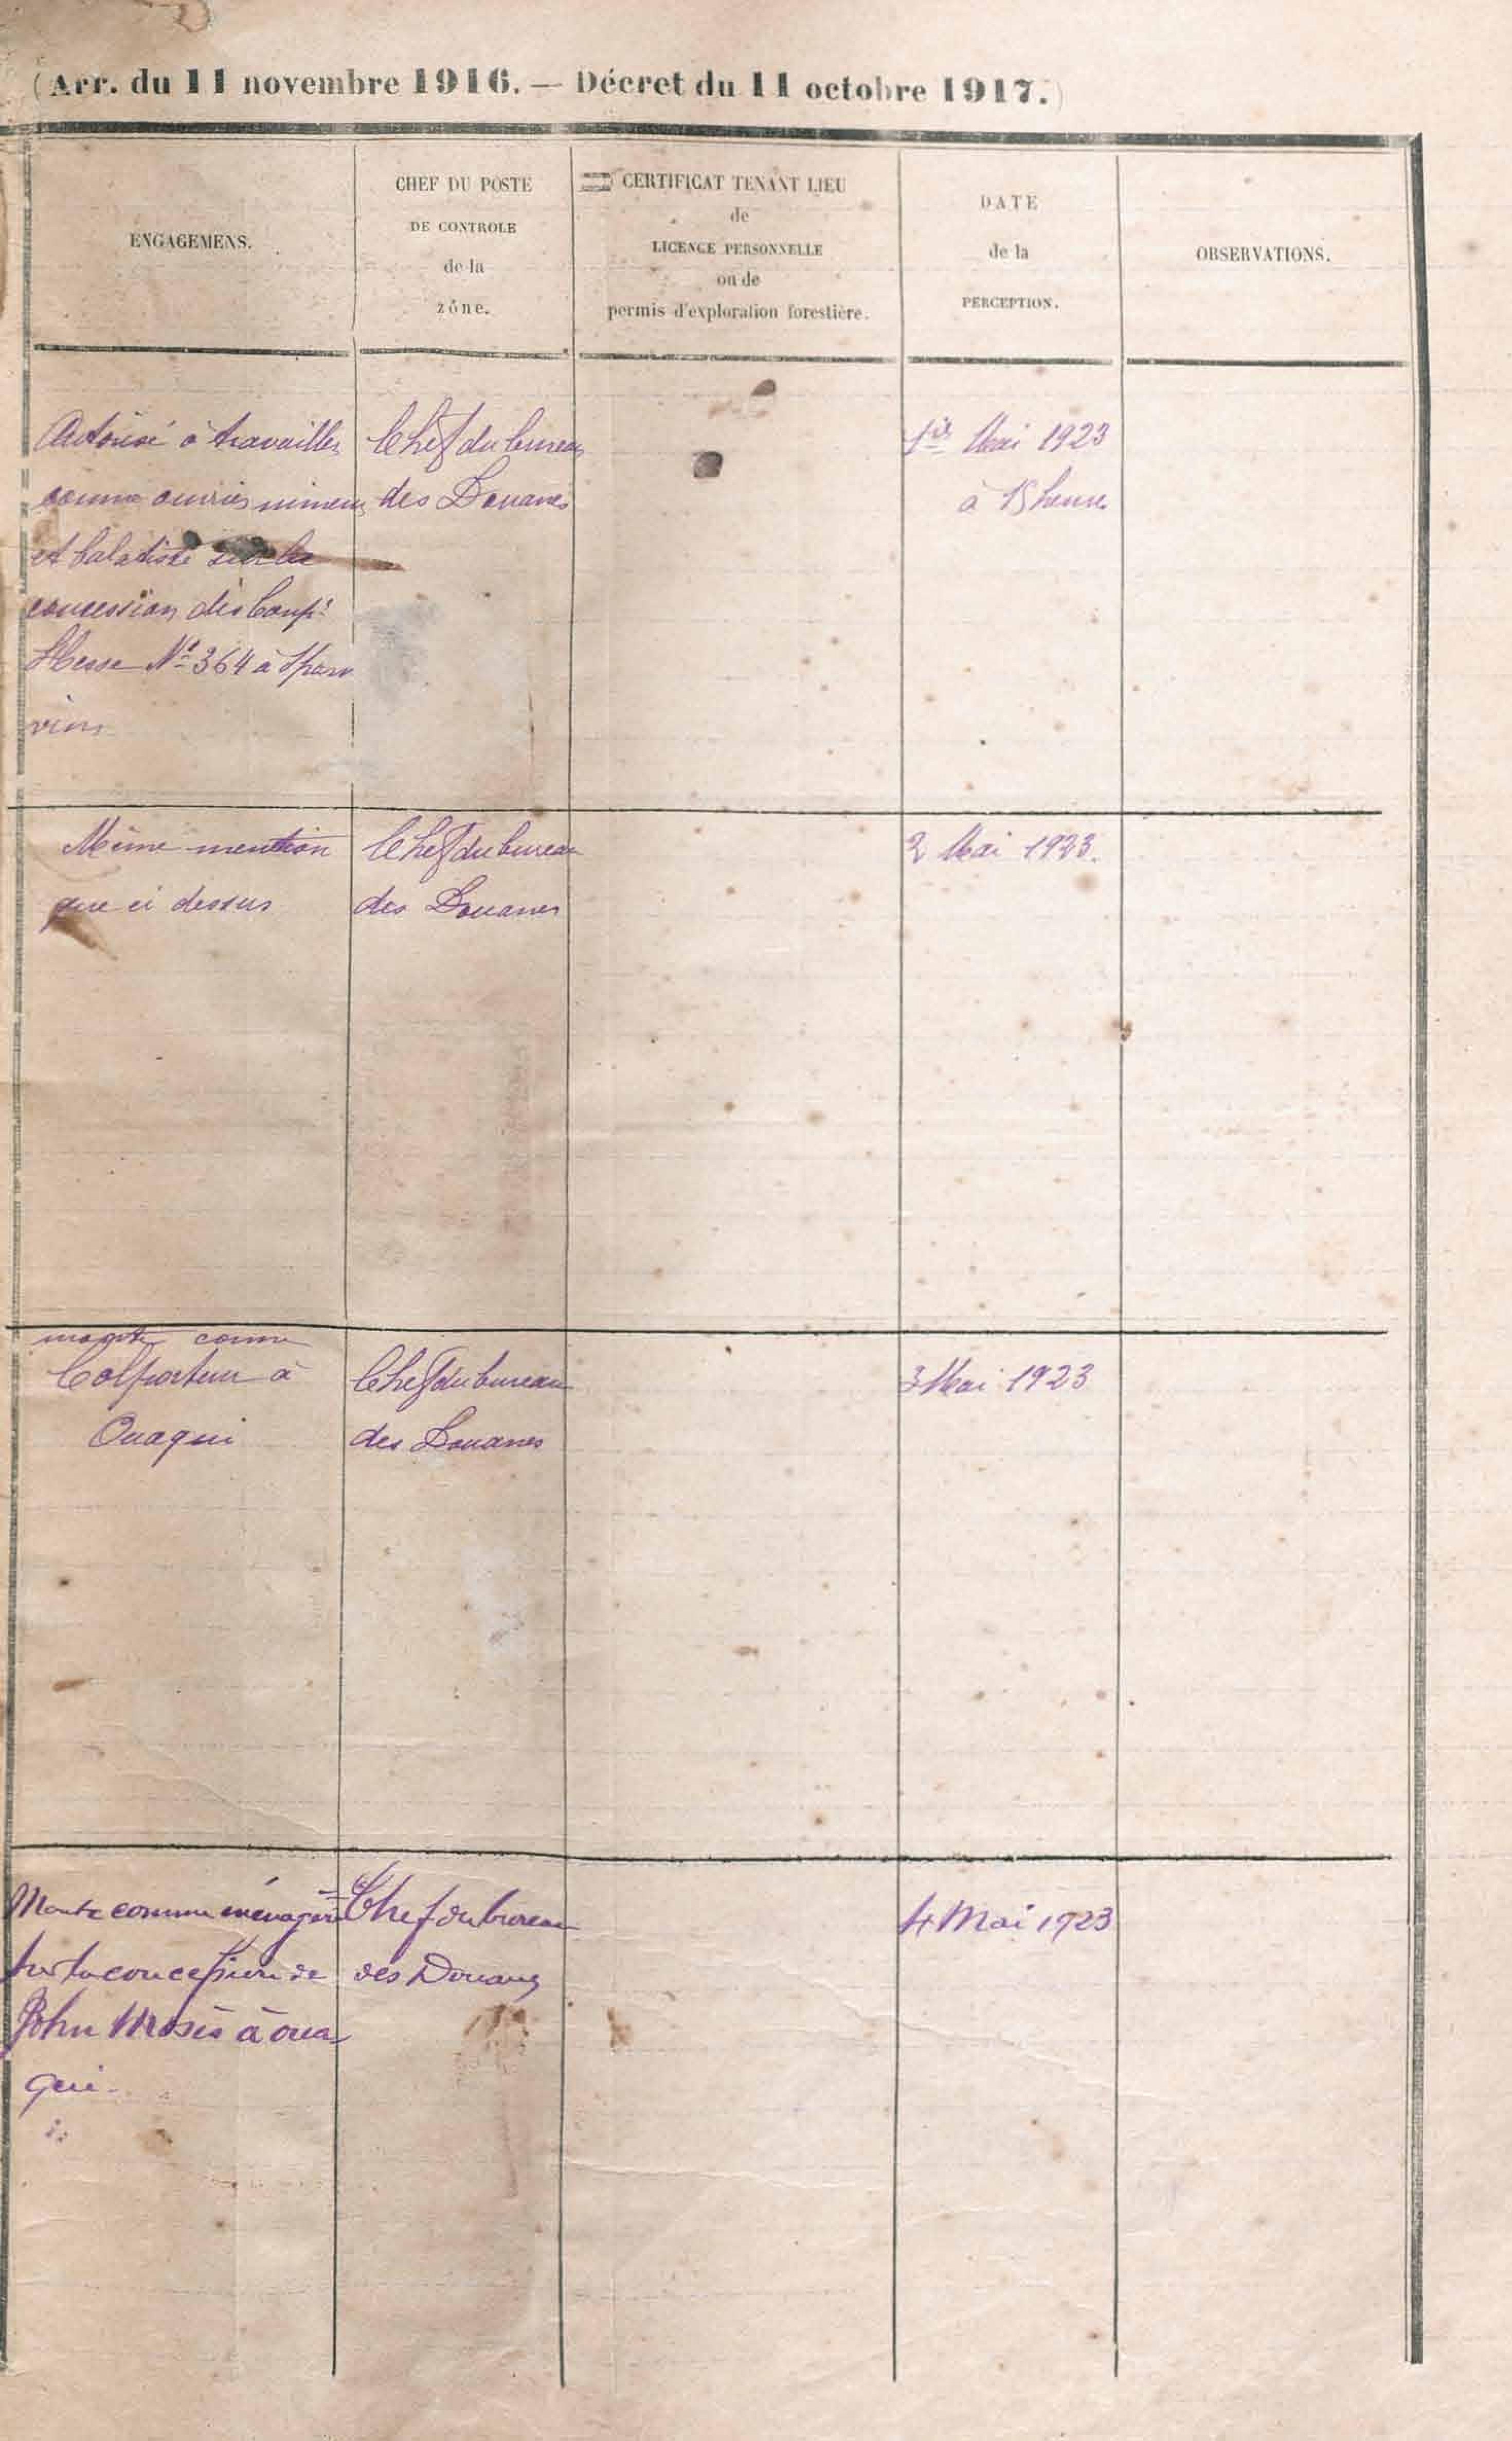 (Arr. du 11 novembre 1916. — Décret du 11 octobre 1917.)
ENGAGEMENS.
CHEF DU POSTE
DE CONTROLE
de la
zône.
CERTIFICAT TENANT LIEU
de
LICENCE PERSONNELLE
ou de
permis d'exploration forestière.
DATE
de la
PERCEPTION.
OBSERVATIONS.
Autorisé à travailler
comme ouvrier mineur
et balatiste sur la
concession des
Hesse No 364 à
Chef du bureau
des Douanes
1er Mai 1923
à 15 heures
Même mention
que ci dessus
Chef du bureau
des Douanes
2 Mai 1923.
monte comme
Colporteur à
Ouaqui
Chef du bureau
des Douanes
3 Mai 1923
Monte comme ménagère
sur la concession de
John Mosès à oua
qui.
Chef du bureau
des Douanes
4 Mai 1923